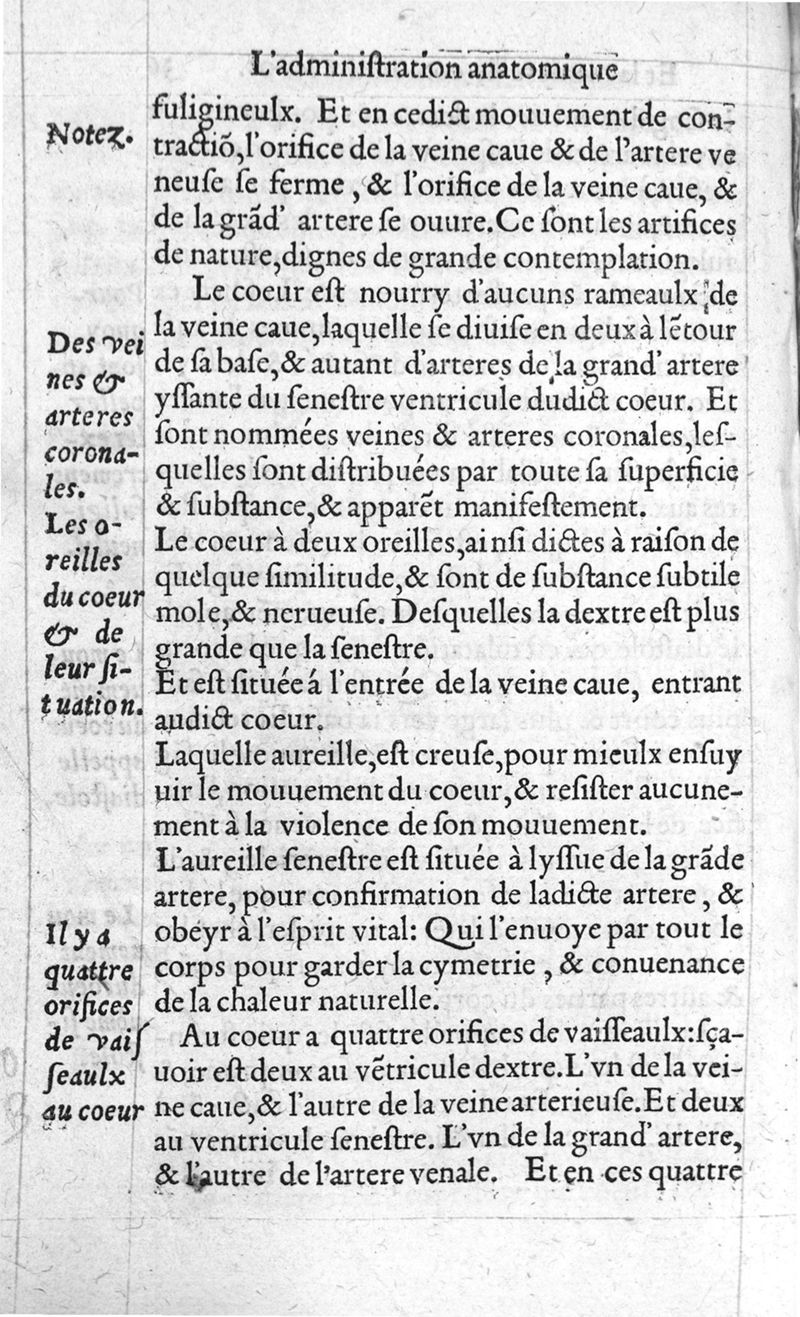 L'adminiſtration anatomique
fuligineulx. Et en cedict mouuement de con-
tractiō,l'orifice de la veine caue & de l'artere ve
neuſe ſe ferme , & l'orifice de la veine caue, &
de la grād' artere ſe ouure.Ce ſont les artifices
de nature,dignes de grande contemplation.
Le coeur eſt nourry d'aucuns rameaulx de
la veine caue,laquelle ſe diuiſe en deux à lētour
de ſa baſe,& autant d'arteres de la grand' artere
yſſante du ſeneſtre ventricule dudict coeur. Et
ſont nommées veines & arteres coronales,leſ-
quelles ſont diſtribuées par toute ſa ſuperficie
& ſubſtance,& apparēt manifeſtement.
Le coeur à deux oreilles,ainſi dictes à raiſon de
quelque ſimilitude,& ſont de ſubſtance ſubtile
mole,& nerueuſe. Deſquelles la dextre eſt plus
grande que la ſeneſtre.
Et eſt ſituée á l'entrée de la veine caue, entrant
audict coeur.
Laquelle aureille,eſt creuſe,pour mieulx enſuy
uir le mouuement du coeur,& reſiſter aucune-
ment à la violence de ſon mouuement.
L'aureille ſeneſtre eſt ſituée à lyſſue de la grāde
artere, pour confirmation de ladicte artere , &
obeyr à l'eſprit vital: Qui l'enuoye par tout le
corps pour garder la cymetrie , & conuenance
de la chaleur naturelle.
Au coeur a quattre orifices de vaiſſeaulx:ſça-
uoir eſt deux au vētricule dextre.L'vn de la vei-
ne caue,& l'autre de la veine arterieuſe.Et deux
au ventricule ſeneſtre. L'vn de la grand' artere,
& l'autre de l'artere venale. Et en ces quattre
Notez.
Des vei
nes &
arteres
corona-
les.
Les o-
reilles
du coeur
& de
leur ſi-
tuation.
Il y a
quattre
orifices
de vaiſ
ſeaulx
au coeur